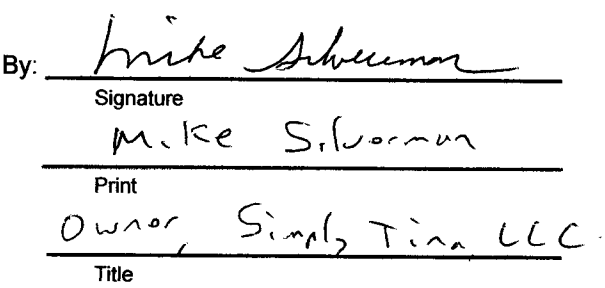 By: Mike Silverman
Signature
Mike Silverman
Print
Owner, Simply Tina LLC
Title